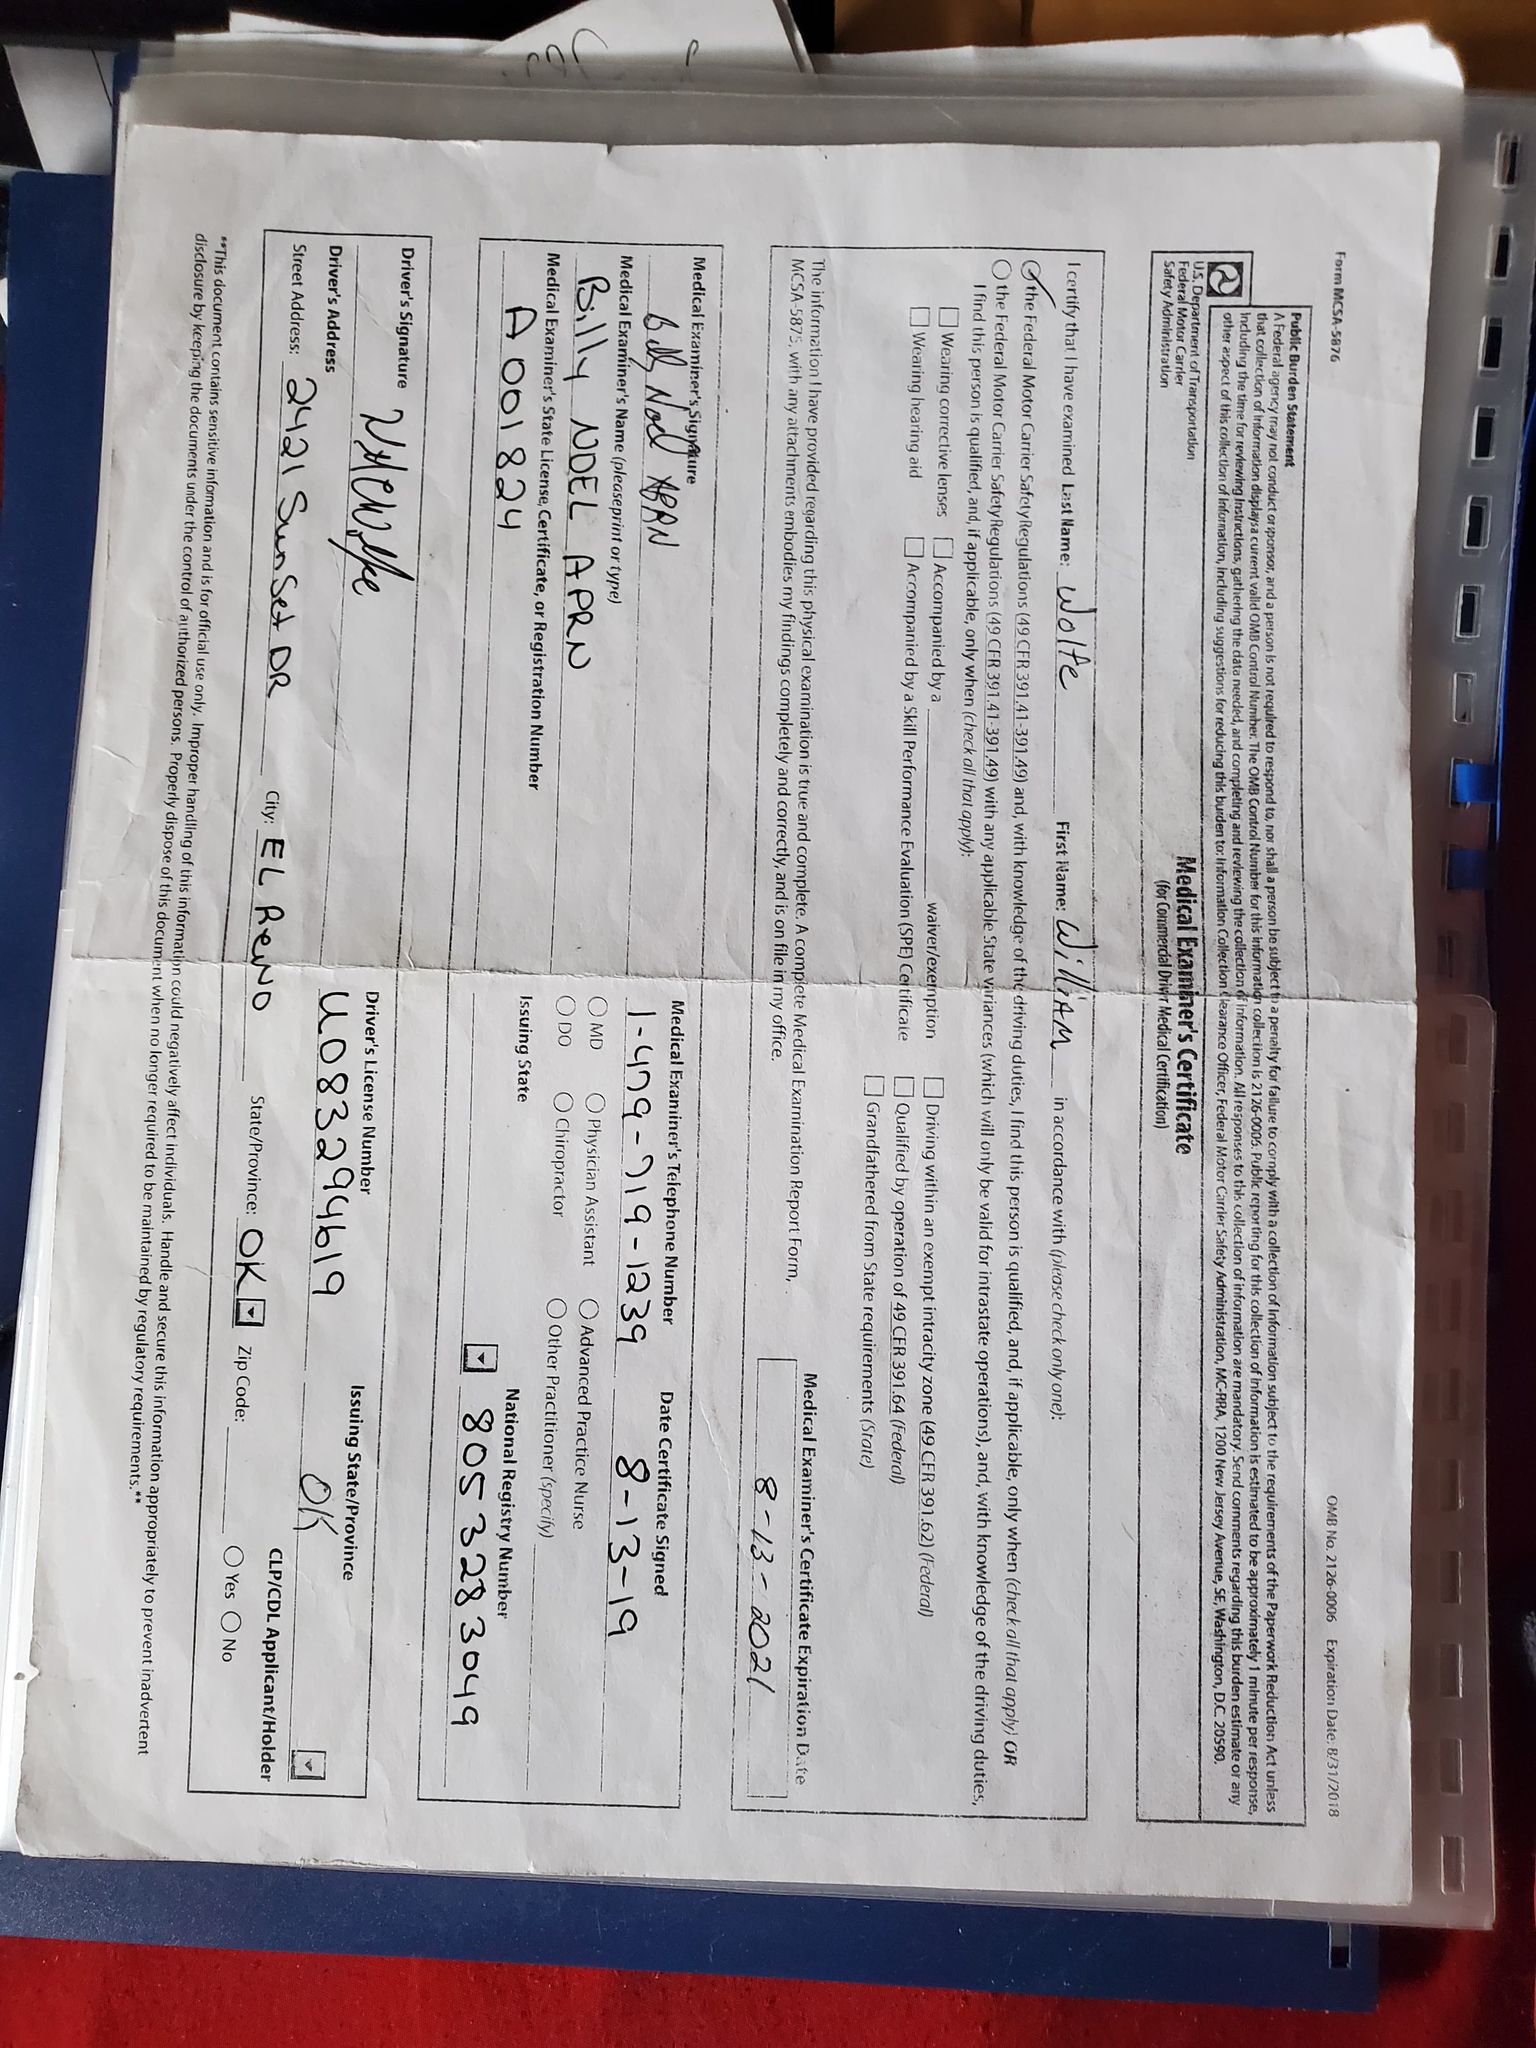 Form MCSA-5876
OMB No. 2126-0006 Expiration Date: 8/31/2018
Public Burden Statement
A Federal agency may not conduct or sponsor, and a person is not required to respond to, nor shall a person be subject to a penalty for failure to comply with a collection of information subject to the requirements of the Paperwork Reduction Act unless
that collection of information displays a current valid OMB Control Number. The OMB Control Number for this information collection is 2126-0006. Public reporting for this collection of information is estimated to be approximately 1 minute per response,
including the time for reviewing instructions, gathering the data needed, and completing and reviewing the collection of information. All responses to this collection of information are mandatory. Send comments regarding this burden estimate or any
other aspect of this collection of information, including suggestions for reducing this burden to: Information Collection Clearance Officer, Federal Motor Carrier Safety Administration, MC-RRA, 1200 New Jersey Avenue, SE, Washington, D.C. 20590.
U.S. Department of Transportation
Federal Motor Carrier
Safety Administration
Medical Examiner's Certificate
(for Commercial Driver Medical Certification)
I certify that I have examined Last Name: Wolfe First Name: William in accordance with (please check only one):
the Federal Motor Carrier Safety Regulations (49 CFR 391.41-391.49) and, with knowledge of the driving duties, I find this person is qualified, and, if applicable, only when (check all that apply) OR
the Federal Motor Carrier Safety Regulations (49 CFR 391.41-391.49) with any applicable State variances (which will only be valid for intrastate operations), and, with knowledge of the driving duties,
I find this person is qualified, and, if applicable, only when (check all that apply):
Wearing corrective lenses Accompanied by a waiver/exemption Driving within an exempt intracity zone (49 CFR 391.62) (Federal)
Wearing hearing aid Accompanied by a Skill Performance Evaluation (SPE) Certificate Qualified by operation of 49 CFR 391.64 (Federal)
Grandfathered from State requirements (State)
The information I have provided regarding this physical examination is true and complete. A complete Medical Examination Report Form,
MCSA-5875, with any attachments embodies my findings completely and correctly, and is on file in my office.
Medical Examiner's Certificate Expiration Date
8-13-2021
Medical Examiner's Signature Medical Examiner's Telephone Number Date Certificate Signed
Billy Noel APRN 1-479-719-1239 8-13-19
Medical Examiner's Name (please print or type)
Billy NOEL APRN
MD Physician Assistant Advanced Practice Nurse
DO Chiropractor Other Practitioner (specify)
Medical Examiner's State License, Certificate, or Registration Number Issuing State National Registry Number
A001824 8053283049
Driver's Signature Driver's License Number Issuing State/Province
U083294619 OK
Driver's Address CLP/CDL Applicant/Holder
Street Address: 2421 SunSet DR City: EL ReNO State/Province: OK Zip Code: Yes No
**This document contains sensitive information and is for official use only. Improper handling of this information could negatively affect individuals. Handle and secure this information appropriately to prevent inadvertent
disclosure by keeping the documents under the control of authorized persons. Properly dispose of this document when no longer required to be maintained by regulatory requirements.**